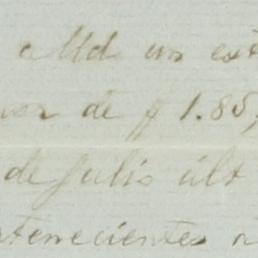 a Ud un est
or de $ 1.85,
de Julio últ
rtenecientes a